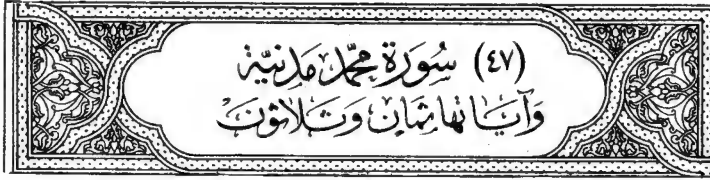 (٤٧) سُورَة مُحَمَّد مَدَنِيَّة
وَآيَاتُهَا ثَمَان وَثَلَاثُونَ